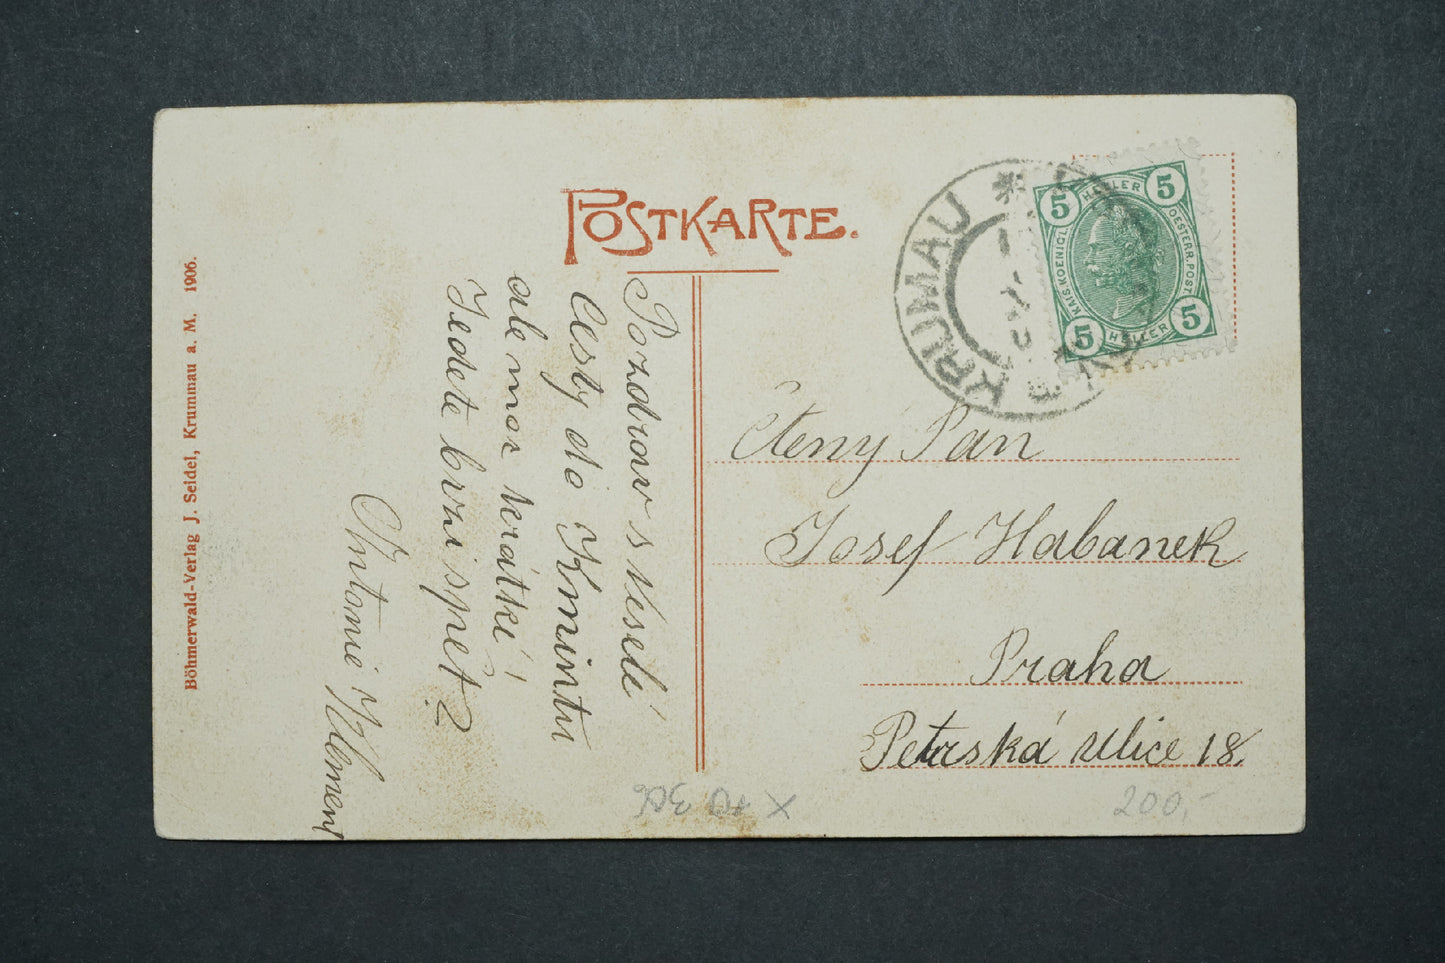 POSTKARTE.
Pozdrav s veselé
Cesty do Kmintu
ale moc krátké!
Jedete brzi spět?
Antonie Klement
Ctěný Pán
Josef Habanek
Praha
Petrská ulice 18.
KRUMAU
5 HELLER 5
KAIS. KOENIGL. OESTERR. POST
5 HELLER 5
Böhmerwald-Verlag J. Seidel, Krummau a. M. 1906.
200,-